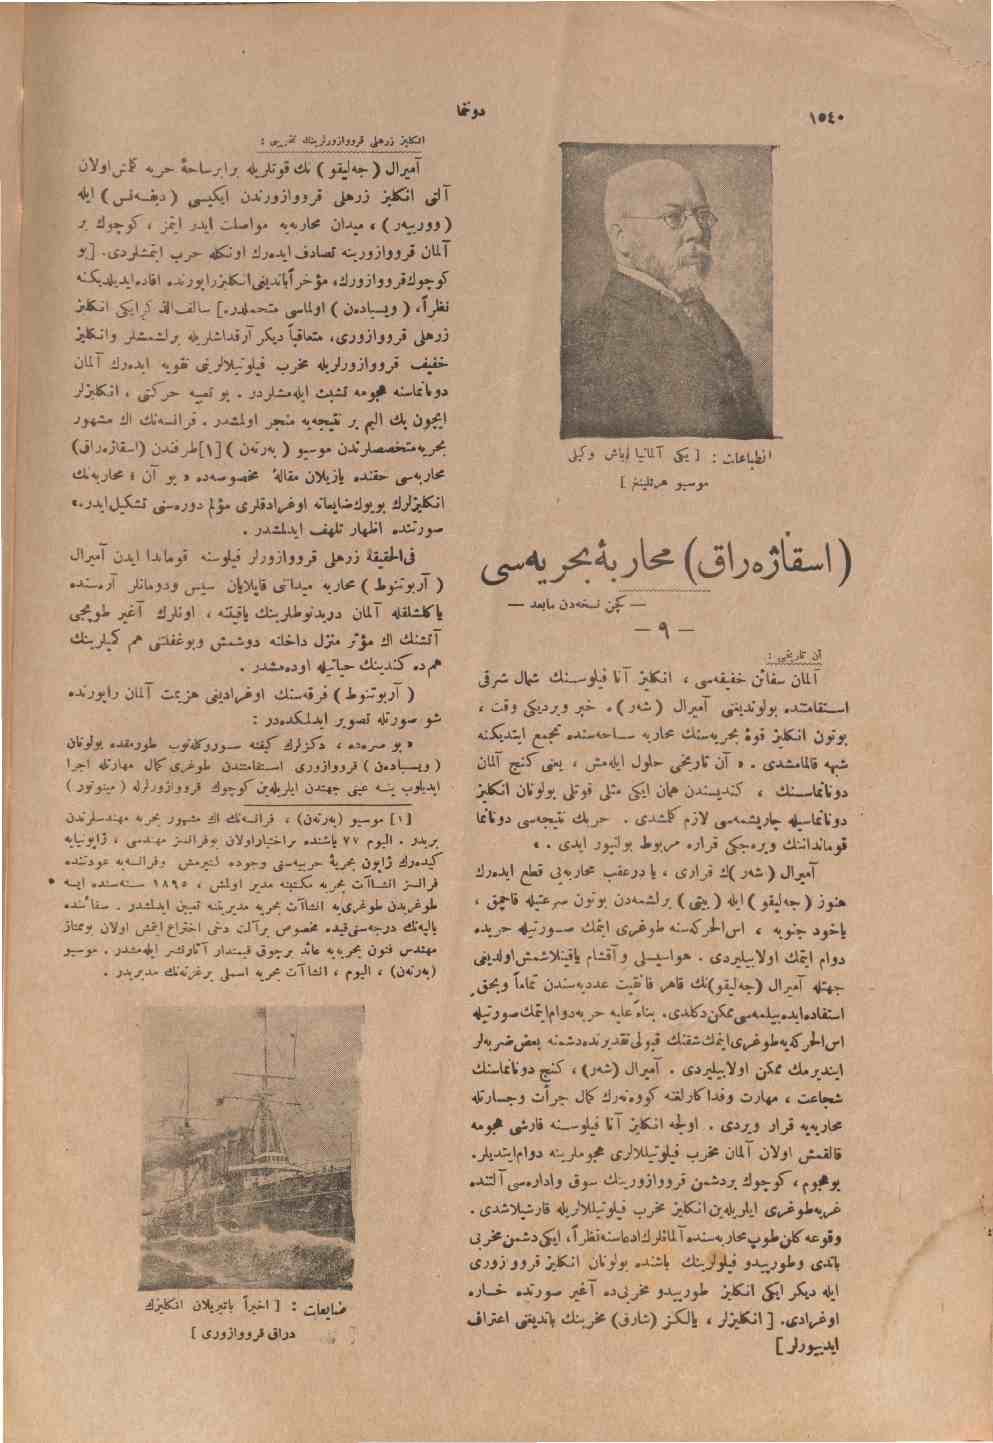 ١٥٤٠
دوننما
انطباعات : [ یکی آلمانیا باش وکیلی
موسیو هرتلینغ ]
( اسقاژه‌راق ) محاربهٔ بحریه‌سی
— کچن نسخه‌دن مابعد —
— ٩ —
آن تاریخی :
آلمان سفائن خفیفه‌سی ، انکلیز آنا فیلوسنك شمال شرقی
استقامتنده بولوندیغنی آمیرال (شه‌ر)ه خبر ویردیکی وقت ،
بوتون انکلیز قوهٔ بحریه‌سنك محاربه ساحه‌سنده تجمع ایتدیکنه
شبهه قالمامشدی . « آن تاریخی حلول ایله‌مش ، یعنی کنج آلمان
دونانماسنك ، کندیسندن همان ایکی مثلی قوتلی بولونان انکلیز
دونانماسیله چارپیشمه‌سی لازم کلمشدی . حربك نتیجه‌سی دونانما
قومانداننك ویره‌جکی قراره مربوط بولنیور ایدی . »
آمیرال (شه‌ر)ك قراری ، یا درعقب محاربه‌یی قطع ایده‌رك
هنوز (جه‌لیقو) ایله (بیتی) برلشمه‌دن بوتون سرعتیله قاچمق ،
یاخود جنوبه ، اس‌الحرکه‌سنه طوغری ایتمك صورتیله حربده
دوام ایتمك اولابیلیردی . هواسیسلی و آقشام یاقینلاشمش اولدیغی
جهتله آمیرال (جه‌لیقو)نك قاهر فائقیت عددیه‌سندن تماماً وبحق
استفاده ایده‌بیلمه‌سی ممکن دکلدی. بناءً علیه حربه دوام ایتمك صورتیله
اس‌الحرکه‌یه طوغری ایتمك شقنك قبولی تقدیرنده دشمنه بعض ضربه‌لر
ایندیرمك ممکن اولابیلیردی . آمیرال (شه‌ر) ، کنج دونانماسنك
شجاعت ، مهارت وفداکارلغنه کووه‌نه‌رك کمال جرأت وجسارتله
محاربه‌یه قرار ویردی . اولجه انکلیز آنا فیلوسنه قارشی هجومه
قالقمش اولان آلمان مخرب فیلوتیللالری هجوملرینه دوام ایتدیلر.
بوهجوم ، کوچوك بردشمن قرووازورینك سوق واداره‌سی آلتنده
غربه طوغری ایلریله‌ین انکلیز مخرب فیلوتیللالریله قارشیلاشدی .
وقوعه کلن طوپ محاربه‌سنده آلمانلرك ادعاسنه نظراً ، ایکی دشمن مخربی
باتدی وطورپیدو فیلولرینك باشنده بولونان انکلیز قرووازوری
ایله دیکر ایکی انکلیز طورپیدو مخربی‌ده آغیر صورتده خساره
اوغرادی. [ انکلیزلر ، یالکز (شارق) مخربنك باتدیغنی اعتراف
ایدییورلر ]
انکلیز زرهلی قرووازورلرینك تخریبی :
آمیرال (جه‌لیقو) نك قوتلریله برابر ساحهٔ حربه کلمش اولان
آلتی انکلیز زرهلی قرووازورندن ایکیسی (دیفه‌نس) ایله
(ووریه‌ر) ، میدان محاربه‌یه مواصلت ایدر ایتمز ، کوچوك بر
آلمان قرووازورینه تصادف ایده‌رك اونکله حرب ایتمشلردی. [بو
کوچوك قرووازورك، مؤخراً باندیغی انکلیز راپورنده افاده ایدیلدیکنه
نظراً، (ویسبادەن) اولماسی محتملدر.] سالف‌الذکر ایکی انکلیز
زرهلی قرووازوری، متعاقباً دیکر آرقداشلریله برلشمشلر وانکلیز
خفیف قرووازورلریله مخرب فیلوتیلالرینی تقویه ایده‌رك آلمان
دونانماسنه هجومه تشبث ایله‌مشلردر . بو تعبیه حرکتی ، انکلیزلر
ایچون پك الیم بر نتیجه‌یه منجر اولمشدر . فرانسه‌نك اك مشهور
بحریه متخصصلرندن موسیو (به‌رته‌ن) [١] طرفندن (اسقاژه‌راق)
محاربه‌سی حقنده یازیلان مقالهٔ مخصوصه‌ده « بو آن ، محاربه‌نك
انکلیزلرك بویوك ضایعاته اوغرادقلری مؤلم دوره‌سنی تشکیل ایدر.»
صورتنده اظهار تلهف ایدلمشدر .
فی‌الحقیقة زرهلی قرووازورلر فیلوسنه قوماندا ایدن آمیرال
(آربوتنوط) محاربه میداننی قاپلایان سیس ودومانلر آره‌سنده
یاکلشلقله آلمان دریدنوطلرینك یاقیننه ، اونلرك آغیر طوپجی
آتشنك اك مؤثر منزل داخلنه دوشمش وبوغفلتنی هم کمیلرینك
هم‌ده کندینك حیاتیله اوده‌مشدر .
(آربوتنوط) فرقه‌سنك اوغرادیغی هزیمت آلمان راپورنده
شو صورتله تصویر ایدلمکده‌در :
« بو صره‌ده ، دکزلرك کیفنه سوروکله‌نوب طورمقده بولونان
(ویسبادەن) قرووازوری استقامتندن طوغری کمال مهارتله اجرا
ایدیلوب ینه عینی جهتدن ایلریله‌ین کوچوك قرووازورلرله (مینوتور)
[١] موسیو (به‌رته‌ن) ، فرانسه‌نك اك مشهور بحریه مهندسلرندن
بریدر . الیوم ٧٧ یاشنده بر اختیار اولان بو فرانسز مهندسی ، ژاپونیایه
کیده‌رك ژاپون بحریهٔ حربیه‌سنی وجوده کتیرمش وفرانسه‌یه عودتنده
فرانسز انشاآت بحریه مکتبنه مدیر اولمش ، ١٨٩٥ سنه‌سنده ایسه
طوغریدن طوغری‌یه انشاآت بحریه مدیریتنه تعیین ایدلمشدر . سفائنده
یالپه‌نك درجه‌سنی قیده مخصوص بر آلت دخی اختراع ایتمش اولان بو ممتاز
مهندس فنون بحریه‌یه عائد برچوق قیمتدار آثار نشر ایله‌مشدر . موسیو
(به‌رته‌ن) ، الیوم ، انشاآت بحریه اسملی بر غزته‌نك مدیریدر .
ضایعات : [ اخیراً باتیریلان انکلیزك
دراق قرووازوری ]